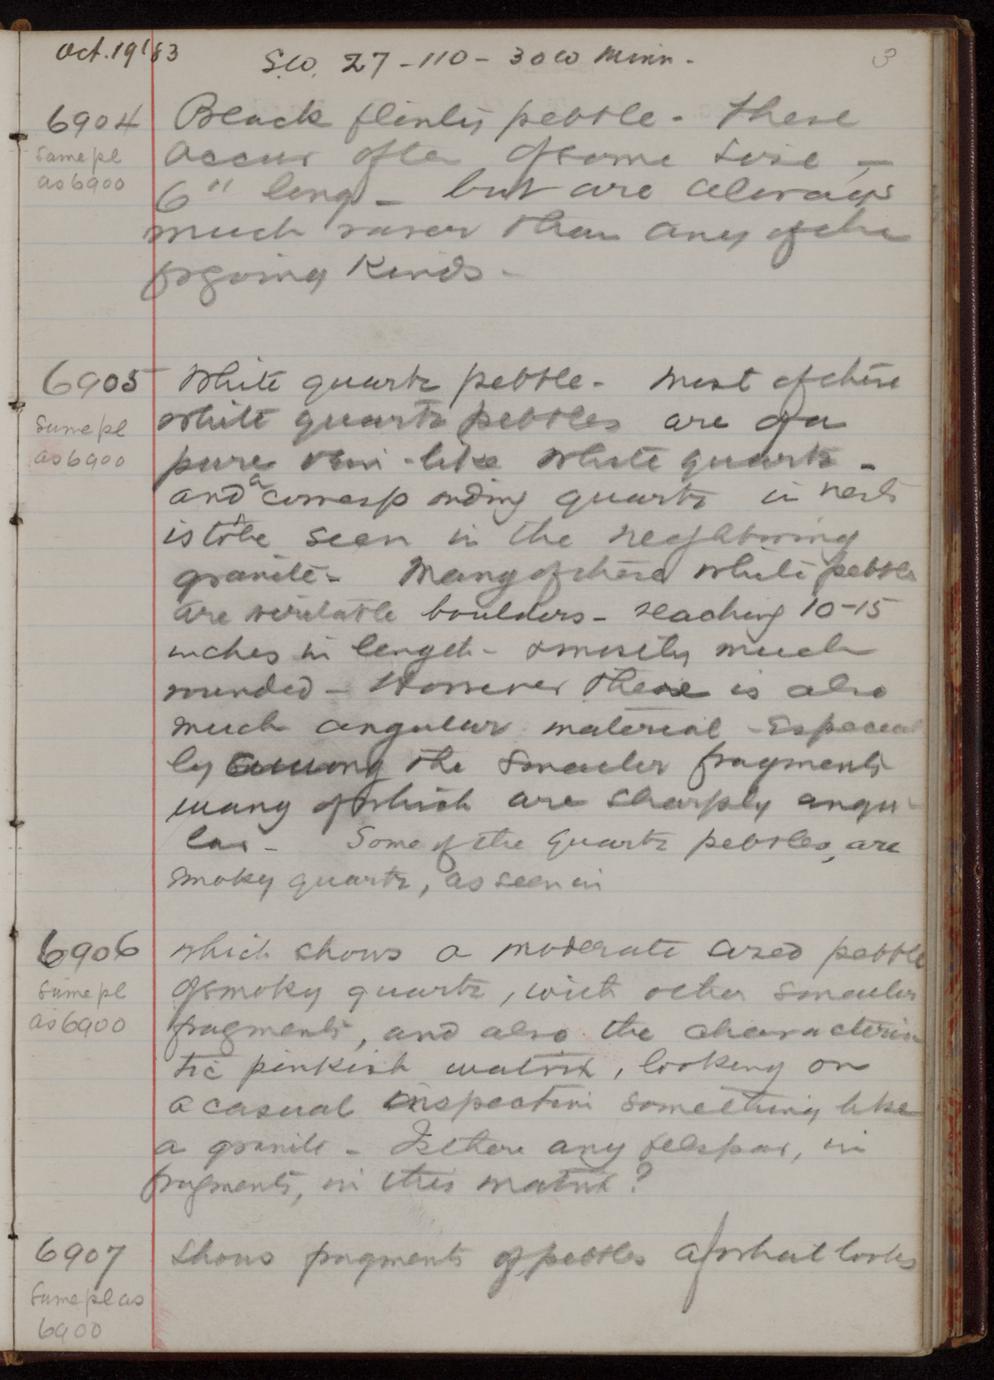 Oct. 19 '83 S.W. 27-110-30W Minn. 3
6904 Black flinty pebble. These
Same pl occur often of some size —
as 6900 6" long — but are always
much rarer than any of the
forgoing kinds.
6905 White quartz pebble. Most of these
Same pl white quartz pebbles are of a
as 6900 pure vein-like white quartz —
and a corresponding quartz in veins
is to be seen in the neighboring
granite. Many of these white pebbles
are veritable boulders — reaching 10-15
inches in length — & mostly much
rounded — However there is also
much angular material — Especial
ly among the smaller fragments
many of which are sharply angu-
lar. Some of the quartz pebbles, are
smoky quartz, as seen in
6906 which shows a moderate sized pebble
Same pl of smoky quartz, with other smaller
as 6900 fragments, and also the characteris
tic pinkish matrix, looking on
a casual inspection something like
a granite — Is there any felspar, in
fragments, in this matrix?
6907 Shows fragments of pebbles of what looks
Same pl as
6900